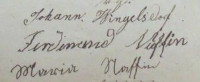 Johann Hingelsdorf
Ferdinand Nüffin
Maria Naffin